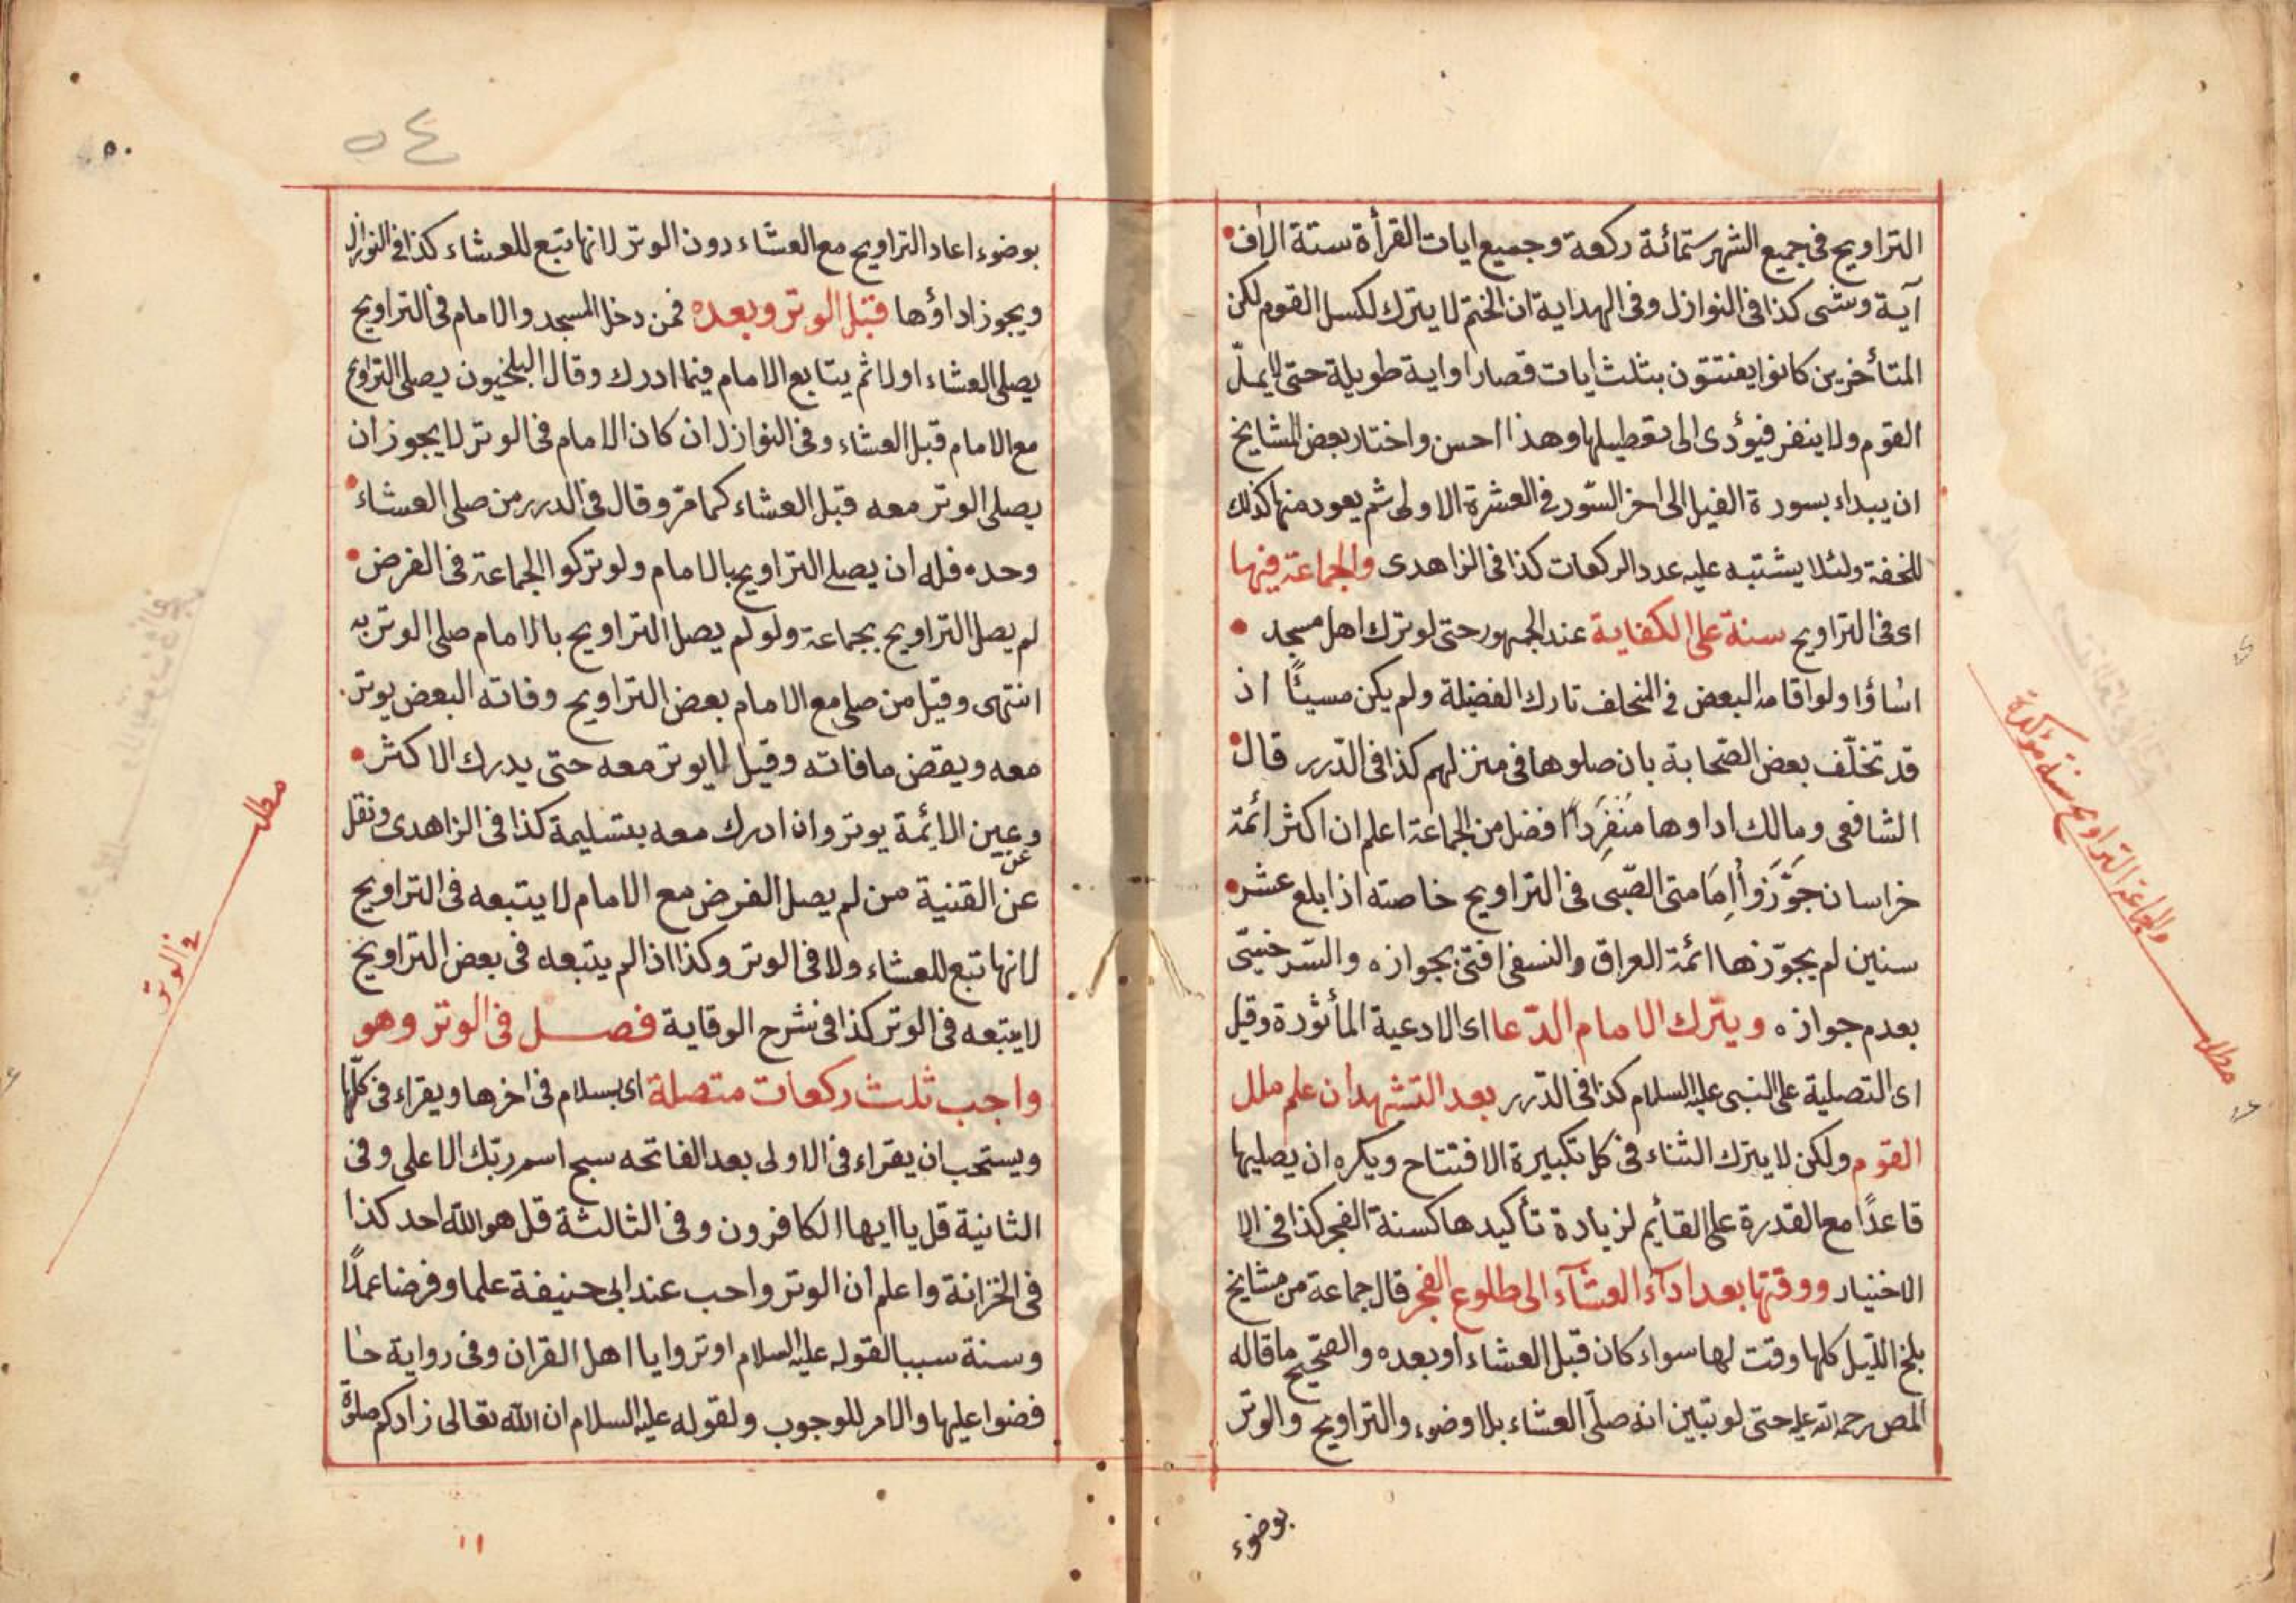 التراويح فى جميع الشهر ستمائة ركعة وجميع ايات القرأة ستة الاف
آية وشى كذا فى النوازل وفى الهداية ان الختم لا يترك لكسل القوم لكن
المتأخرين كانوا يفتتون بثلث ايات قصار او اية طويلة حتى لا يملّ
القوم ولا ينفر فيؤدى الى تعطيلها وهذا احسن واختار بعض المشايخ
ان يبداء بسورة الفيل الى اخر السّور فى العشرة الاولى ثم يعود منها كذلك
للخفة ولئلا يشتبه عليه عدد الركعات كذا فى الزاهدى والجماعة فيها
اى فى التراويح سنة على الكفاية عند الجمهور حتى لو ترك اهل مسجد
اساؤا ولو اقامه البعض فى المتخلف تارك الفضيلة ولم يكن مسيئًا اذ
قد تخلّف بعض الصّحابة بان صلوها فى منزلهم كذا فى الدّرر قال
الشافعى ومالك اداوها منفردًا افضل من الجماعة اعلم ان اكثر ائمة
خراسان جوّزوا امامتى الصّبى فى التراويح خاصته اذا بلع عشر
سنين لم يجوّزها ائمة العراق والنسفى افتى بجوازه والسّرخسى
بعدم جوازه ويترك الامام الدّعا اى الادعية المأثورة وقيل
اى التصلية على النبى عليه السلام كذا فى الدّرر بعد التشهد ان علم ملل
القوم ولكن لا يترك الثناء فى كل تكبيرة الافتتاح ويكره ان يصليها
قاعدًا مع القدرة على القأيم لزيادة تأكيدها كسنة الفجر كذا فى الا
الاختيار ووقتها بعد ادآء العشآء الى طلوع الفجر قال جماعة من مشايخ
بلخ الليل كلها وقت لها سواء كان قبل العشاء او بعده والصّحيح ما قاله
المص رحمة الله عليه حتى لو تبين انه صلّى العشاء بلا وضوء والتراويح والوتر
بوضوء
والجماعة التراويح سنة مؤكدة
مطلب
٥٤
٥٠
بوضوء اعاد التراويح مع العشاء دون الوتر لانها تبع للعشاء كذا فى النوازل
ويجوز اداؤها قبل الوتر وبعده فمن دخل المسجد والامام فى التراويح
يصلى العشاء اولا ثم يتابع الامام فيما ادرك وقال البلخيون يصلى التراويح
مع الامام قبل العشاء وفى النوازل ان كان الامام فى الوتر لا يجوز ان
يصلى الوتر معه قبل العشاء كما مرّ وقال فى الدرر من صلى العشاء
وحده فله ان يصلى التراويح بالامام ولو تركوا الجماعة فى الفرض
لم يصل التراويح بجماعة ولو لم يصل التراويح بالامام صلى الوتر به
انتهى وقيل من صلى مع الامام بعض التراويح وفاته البعض يوتر
معه ويقض ما فاته وقيل لا يوتر معه حتى يدرك الاكثر
وعين الائمة يوتر وان ادرك معه بتسليمة كذا فى الزاهدى ونقل
عن
عن القنية من لم يصل الفرض مع الامام لا يتبعه فى التراويح
لانها تبع للعشاء ولا فى الوتر وكذا اذا لم يتبعه فى بعض التراويح
لا يتبعه فى الوتر كذا فى شرح الوقاية فصل فى الوتر وهو
واجب ثلث ركعات متصلة اى بسلام فى اخرها ويقراء فى كلّها
ويستحب ان يقراء فى الاولى بعد الفاتحه سبح اسم ربّك الاعلى وفى
الثانية قل يا ايها الكافرون وفى الثالثة قل هو الله احد كذا
فى الخزانة واعلم ان الوتر واحب عند ابى حنيفة علما وفرضا عملًا
وسنة سببا لقوله عليه السلام اوتروا يا اهل القران وفى رواية حا
فضوا عليها والامر للوجوب ولقوله عليه السلام ان الله تعالى زادكم صلوة
مطلب
فى الوتر
١١